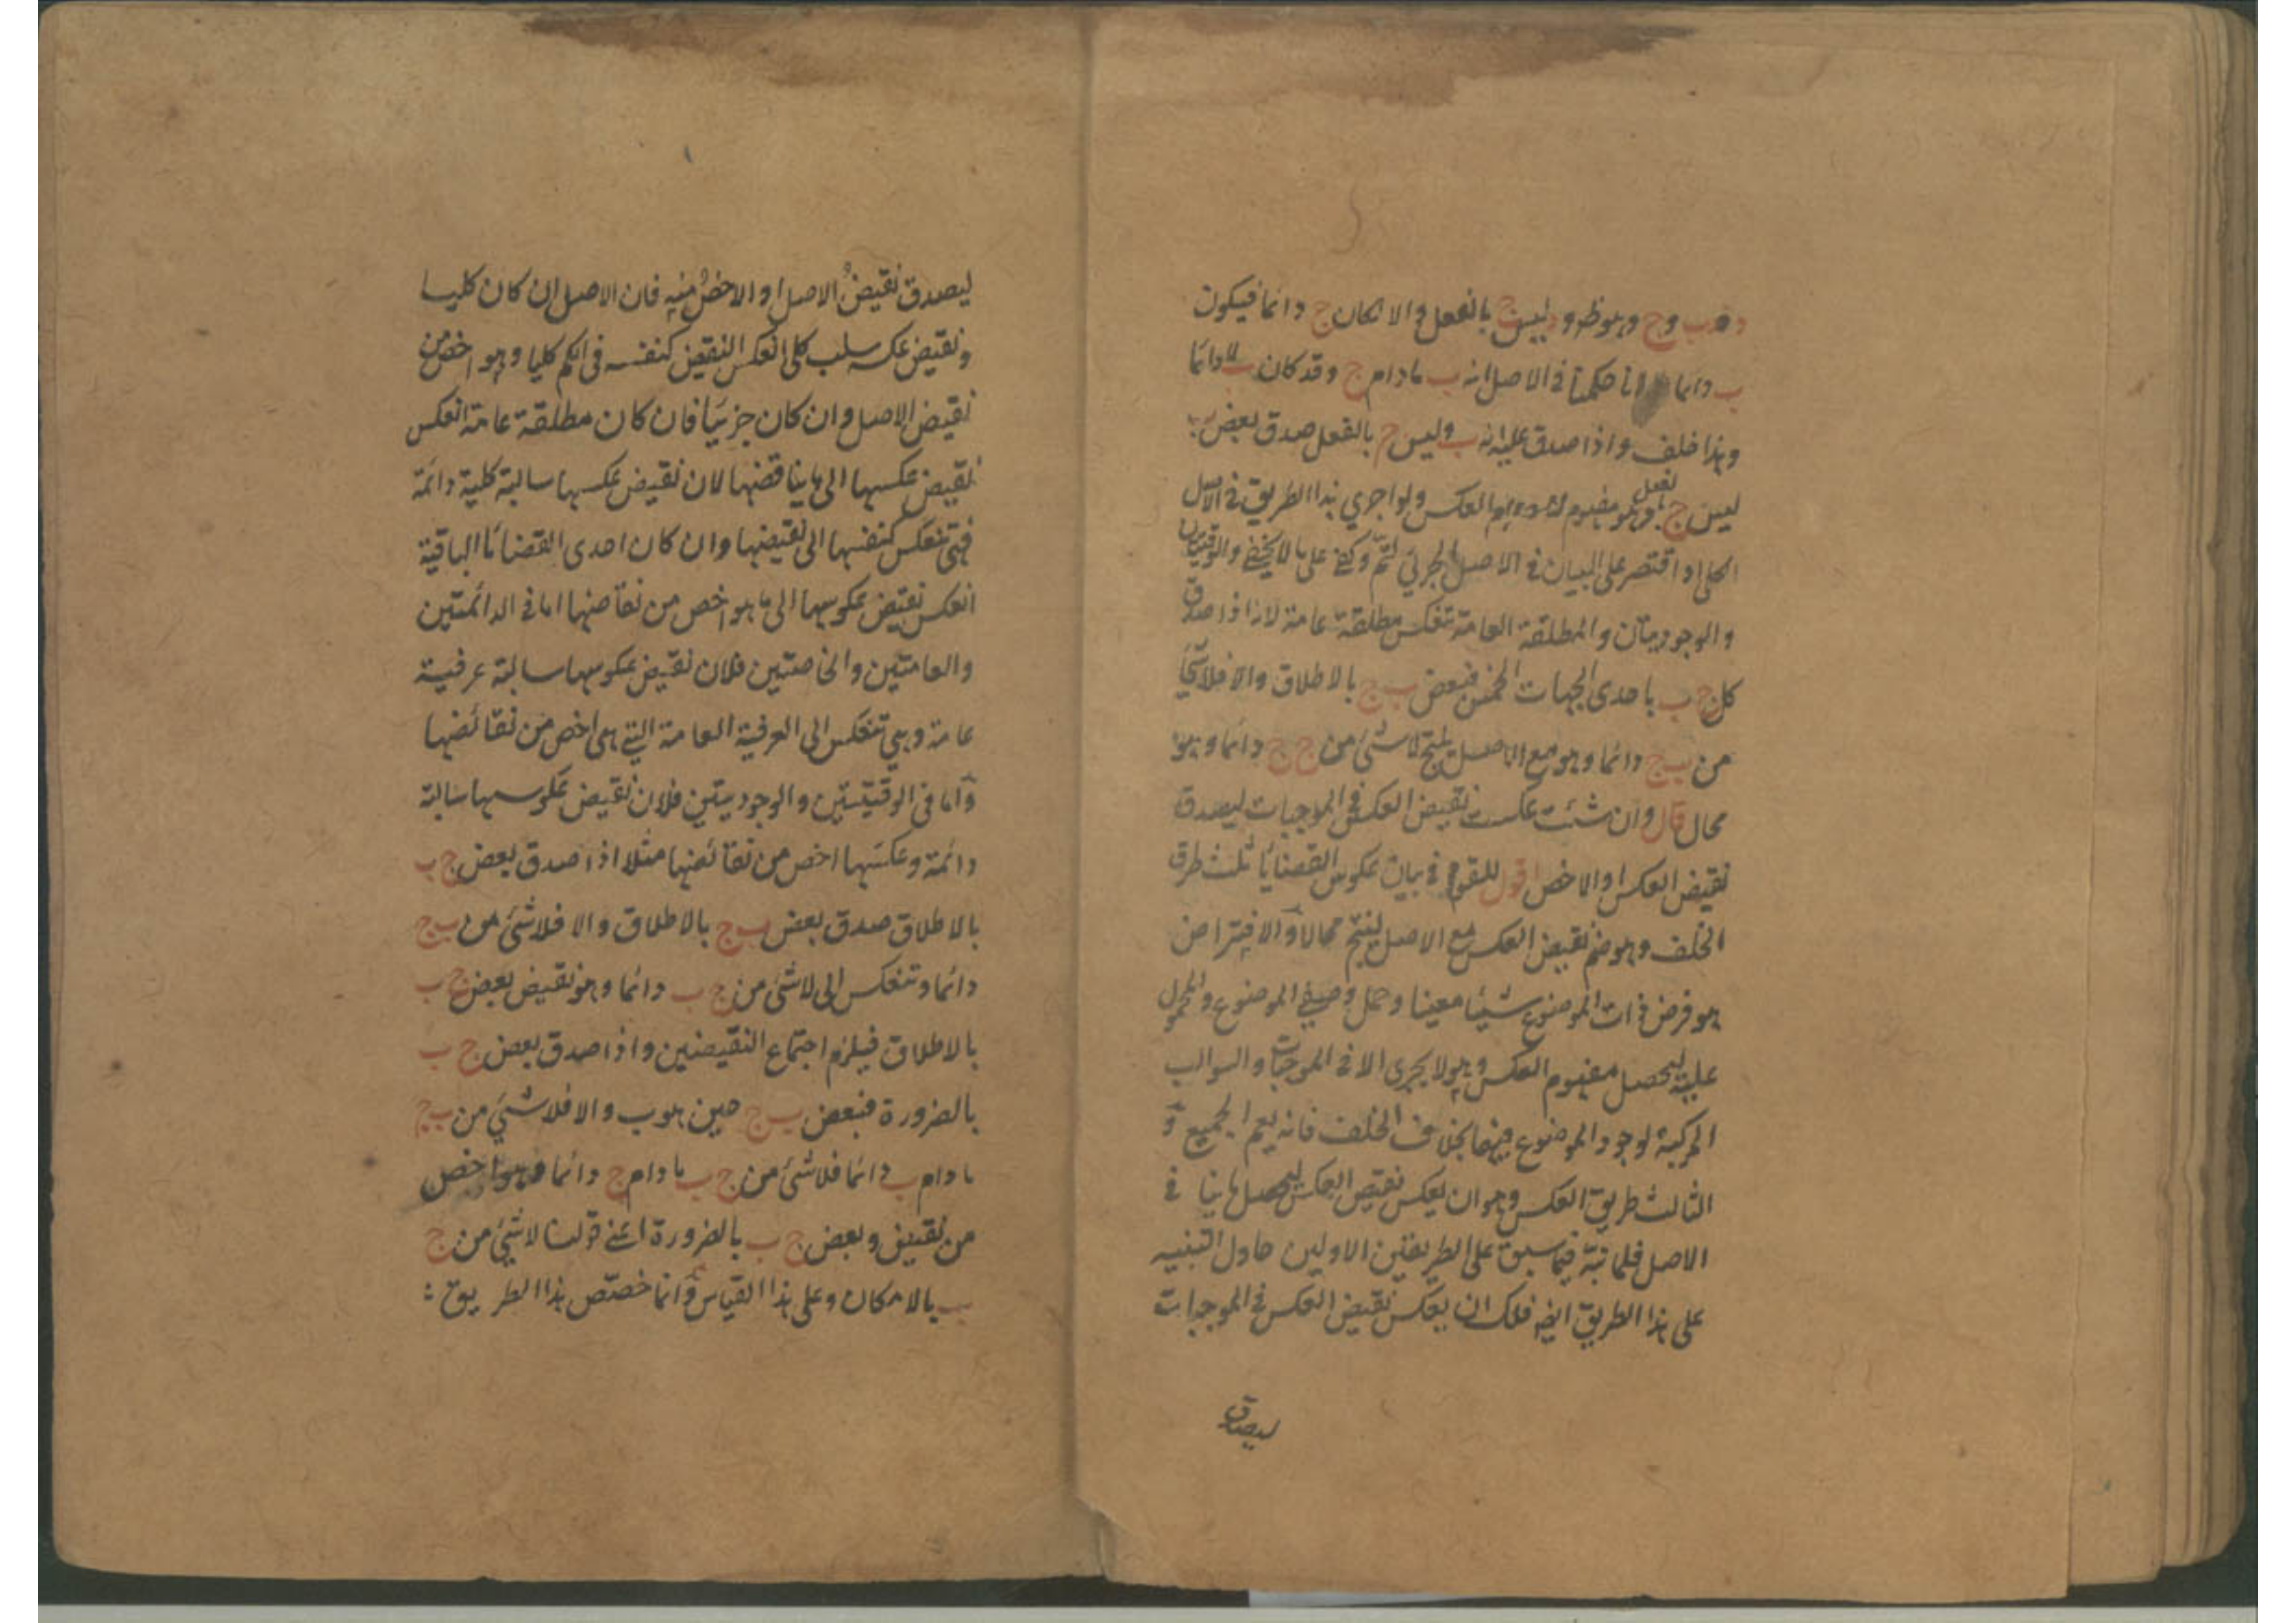 د ب و ج وهو ظ و د ليس ج بالفعل والا لكان ج دائما فيكون
ب دائما لانا حكمنا في الاصل انه ب مادام ج وقد كان ب لا دائما
وهذا خلف واذا صدق عليه انه ب وليس ج بالفعل صدق بعض ب
ليس ج بالفعل وهو مفهوم لا دوام العكس ولو اجري هذا الطريق في الاصل
الكلي او اقتصر على البيان في الاصل الجزئي لتم وكفى على ما لا يخفى والوقتيتان
والوجوديتان والمطلقة العامة تنعكس مطلقة عامة لانه اذا صدق
كل ج ب باحدى الجهات الخمس فبعض ب ج بالاطلاق والا فلا شئ
من ب ج دائما وهو مع الاصل ينتج لا شئ من ج ج دائما وهو
محال قال وان شئت عكست نقيض العكس في الموجبات ليصدق
نقيض العكس او الاخص اقول للقوم في بيان عكوس القضايا ثلث طرق
الخلف وهو ضم نقيض العكس مع الاصل لينتج محالا والافتراض
هو فرض ذات الموضوع شيئا معينا وحمل وصفي الموضوع والمحمول
عليه ليحصل مفهوم العكس وهو لا يجري الا في الموجبات والسوالب
المركبة لوجود الموضوع فيهما بخلاف الخلف فانه يعم الجميع و
الثالث طريق العكس وهو ان يعكس نقيض العكس ليحصل ما ينا في
الاصل فلما نبه فيما سبق على الطريقين الاولين حاول التنبيه
على هذا الطريق ايضه فلك ان يعكس نقيض العكس في الموجبات
ليصدق
ليصدق نقيض الاصل او الاخص منه فان الاصل ان كان كليا
ونقيض عكسه سلب كلي انعكس النقيض كنفسه في الكم كليا وهو اخص من
نقيض الاصل وان كان جزئيا فان كان مطلقة عامة انعكس
نقيض عكسها الى ما يناقضها لان نقيض عكسها سالبة كلية دائمة
فهي تنعكس كنفسها الى نقيضها وان كان احدى القضايا الباقية
انعكس نقيض عكوسها الى ما هو اخص من نقائضها اما في الدائمتين
والعامتين والخاصتين فلان نقيض عكوسها سالبة عرفية
عامة وهي تنعكس الى العرفية العامة التي هي اخص من نقائضها
واما في الوقتيتين والوجوديتين فلان نقيض عكوسها سالبة
دائمة وعكسها اخص من نقائضها مثلا اذا صدق بعض ج ب
بالاطلاق صدق بعض ب ج بالاطلاق والا فلا شئ من ب ج
دائما وتنعكس الى لا شئ من ج ب دائما وهو نقيض بعض ج ب
بالاطلاق فيلزم اجتماع النقيضين واذا صدق بعض ج ب
بالضرورة فبعض ب ج حين هو ب والا فلا شئ من ب ج
مادام ب دائما فلا شئ من ج ب مادام ج دائما وهو اخص
من نقيض وبعض ج ب بالضرورة اعني قولنا لا شئ من ج
ب بالامكان وعلى هذا القياس وانما خصص هذا الطريق :